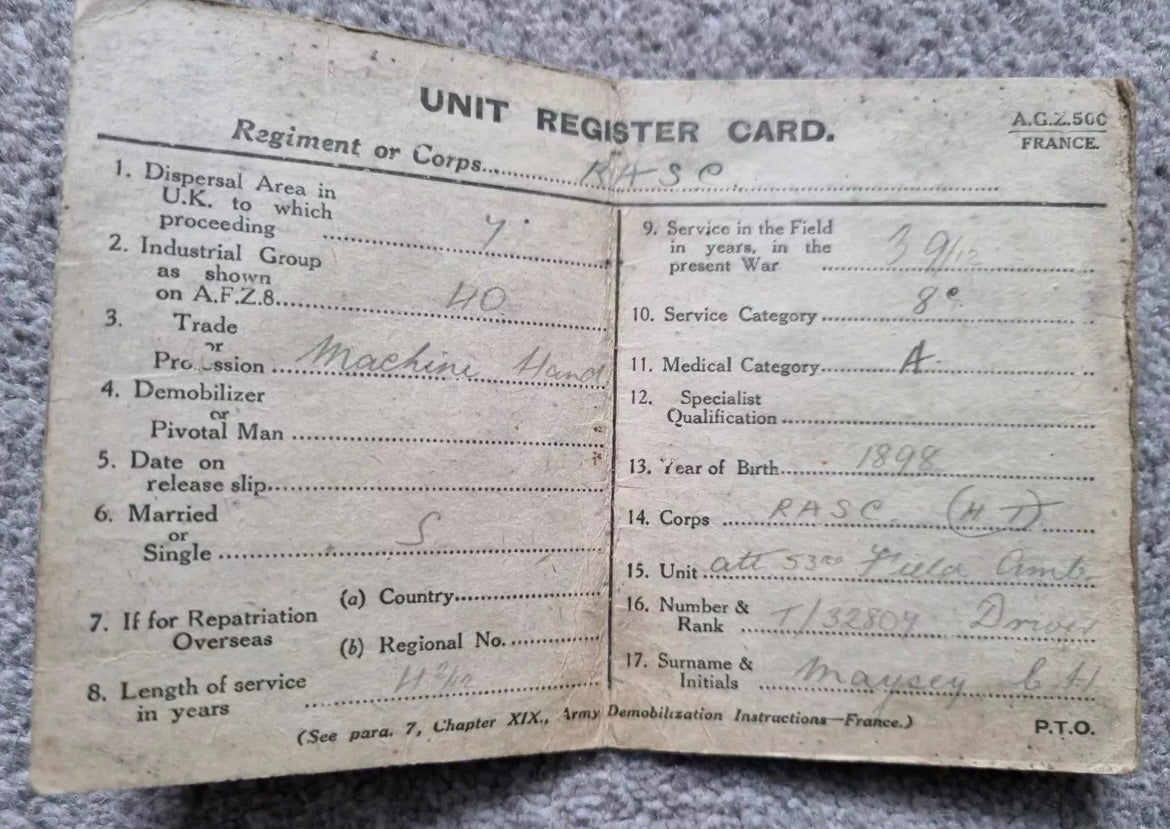 UNIT REGISTER CARD.
A.G.Z.500
FRANCE.
Regiment or Corps RASC
1. Dispersal Area in
U.K. to which
proceeding
2. Industrial Group
as shown
on A.F.Z.8. 40
3. Trade
or
Pro ssion Machine Hand
4. Demobilizer
or
Pivotal Man
5. Date on
release slip
6. Married
or
Single S
7. If for Repatriation
Overseas
(a) Country
(b) Regional No.
8. Length of service
in years 4 2/12
9. Service in the Field
in years, in the
present War 3 9/12
10. Service Category 8c
11. Medical Category A.
12. Specialist
Qualification
13. Year of Birth 1898
14. Corps RASC. (HT)
15. Unit att 53rd Field Amb.
16. Number &
Rank T/32804 Driver
17. Surname &
Initials Maysey C H
(See para. 7, Chapter XIX., Army Demobilization Instructions—France.)
P.T.O.